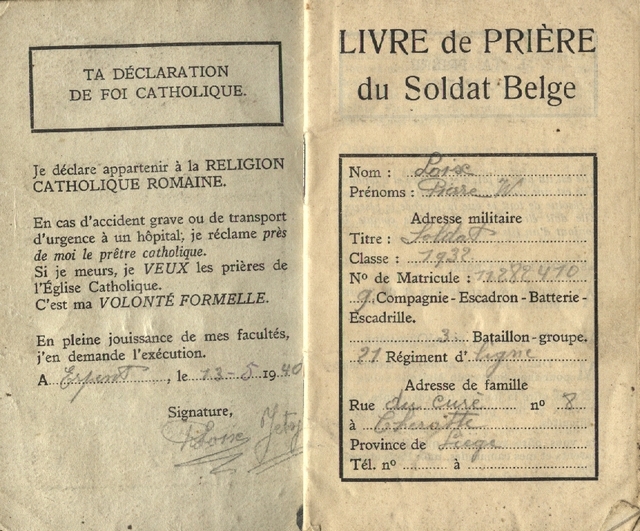 TA DÉCLARATION
DE FOI CATHOLIQUE.
Je déclare appartenir à la RELIGION
CATHOLIQUE ROMAINE.
En cas d'accident grave ou de transport
d'urgence à un hôpital, je réclame près
de moi le prêtre catholique.
Si je meurs, je VEUX les prières de
l'Église Catholique.
C'est ma VOLONTÉ FORMELLE.
En pleine jouissance de mes facultés,
j'en demande l'exécution.
A Erpent, le 13-5 1940
Signature,
LIVRE de PRIÈRE
du Soldat Belge
Nom : Loix
Prénoms : Pierre W
Adresse militaire
Titre : Soldat
Classe : 1932
Nº de Matricule :
9 Compagnie - Escadron - Batterie -
Escadrille.
3 Bataillon-groupe.
21 Régiment d' ligne
Adresse de famille
Rue du curé nº 8
à Cheratte
Province de Liège
Tél. nº à